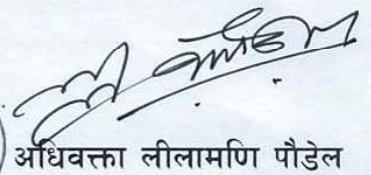 अधिवक्ता लीलामणि पौडेल